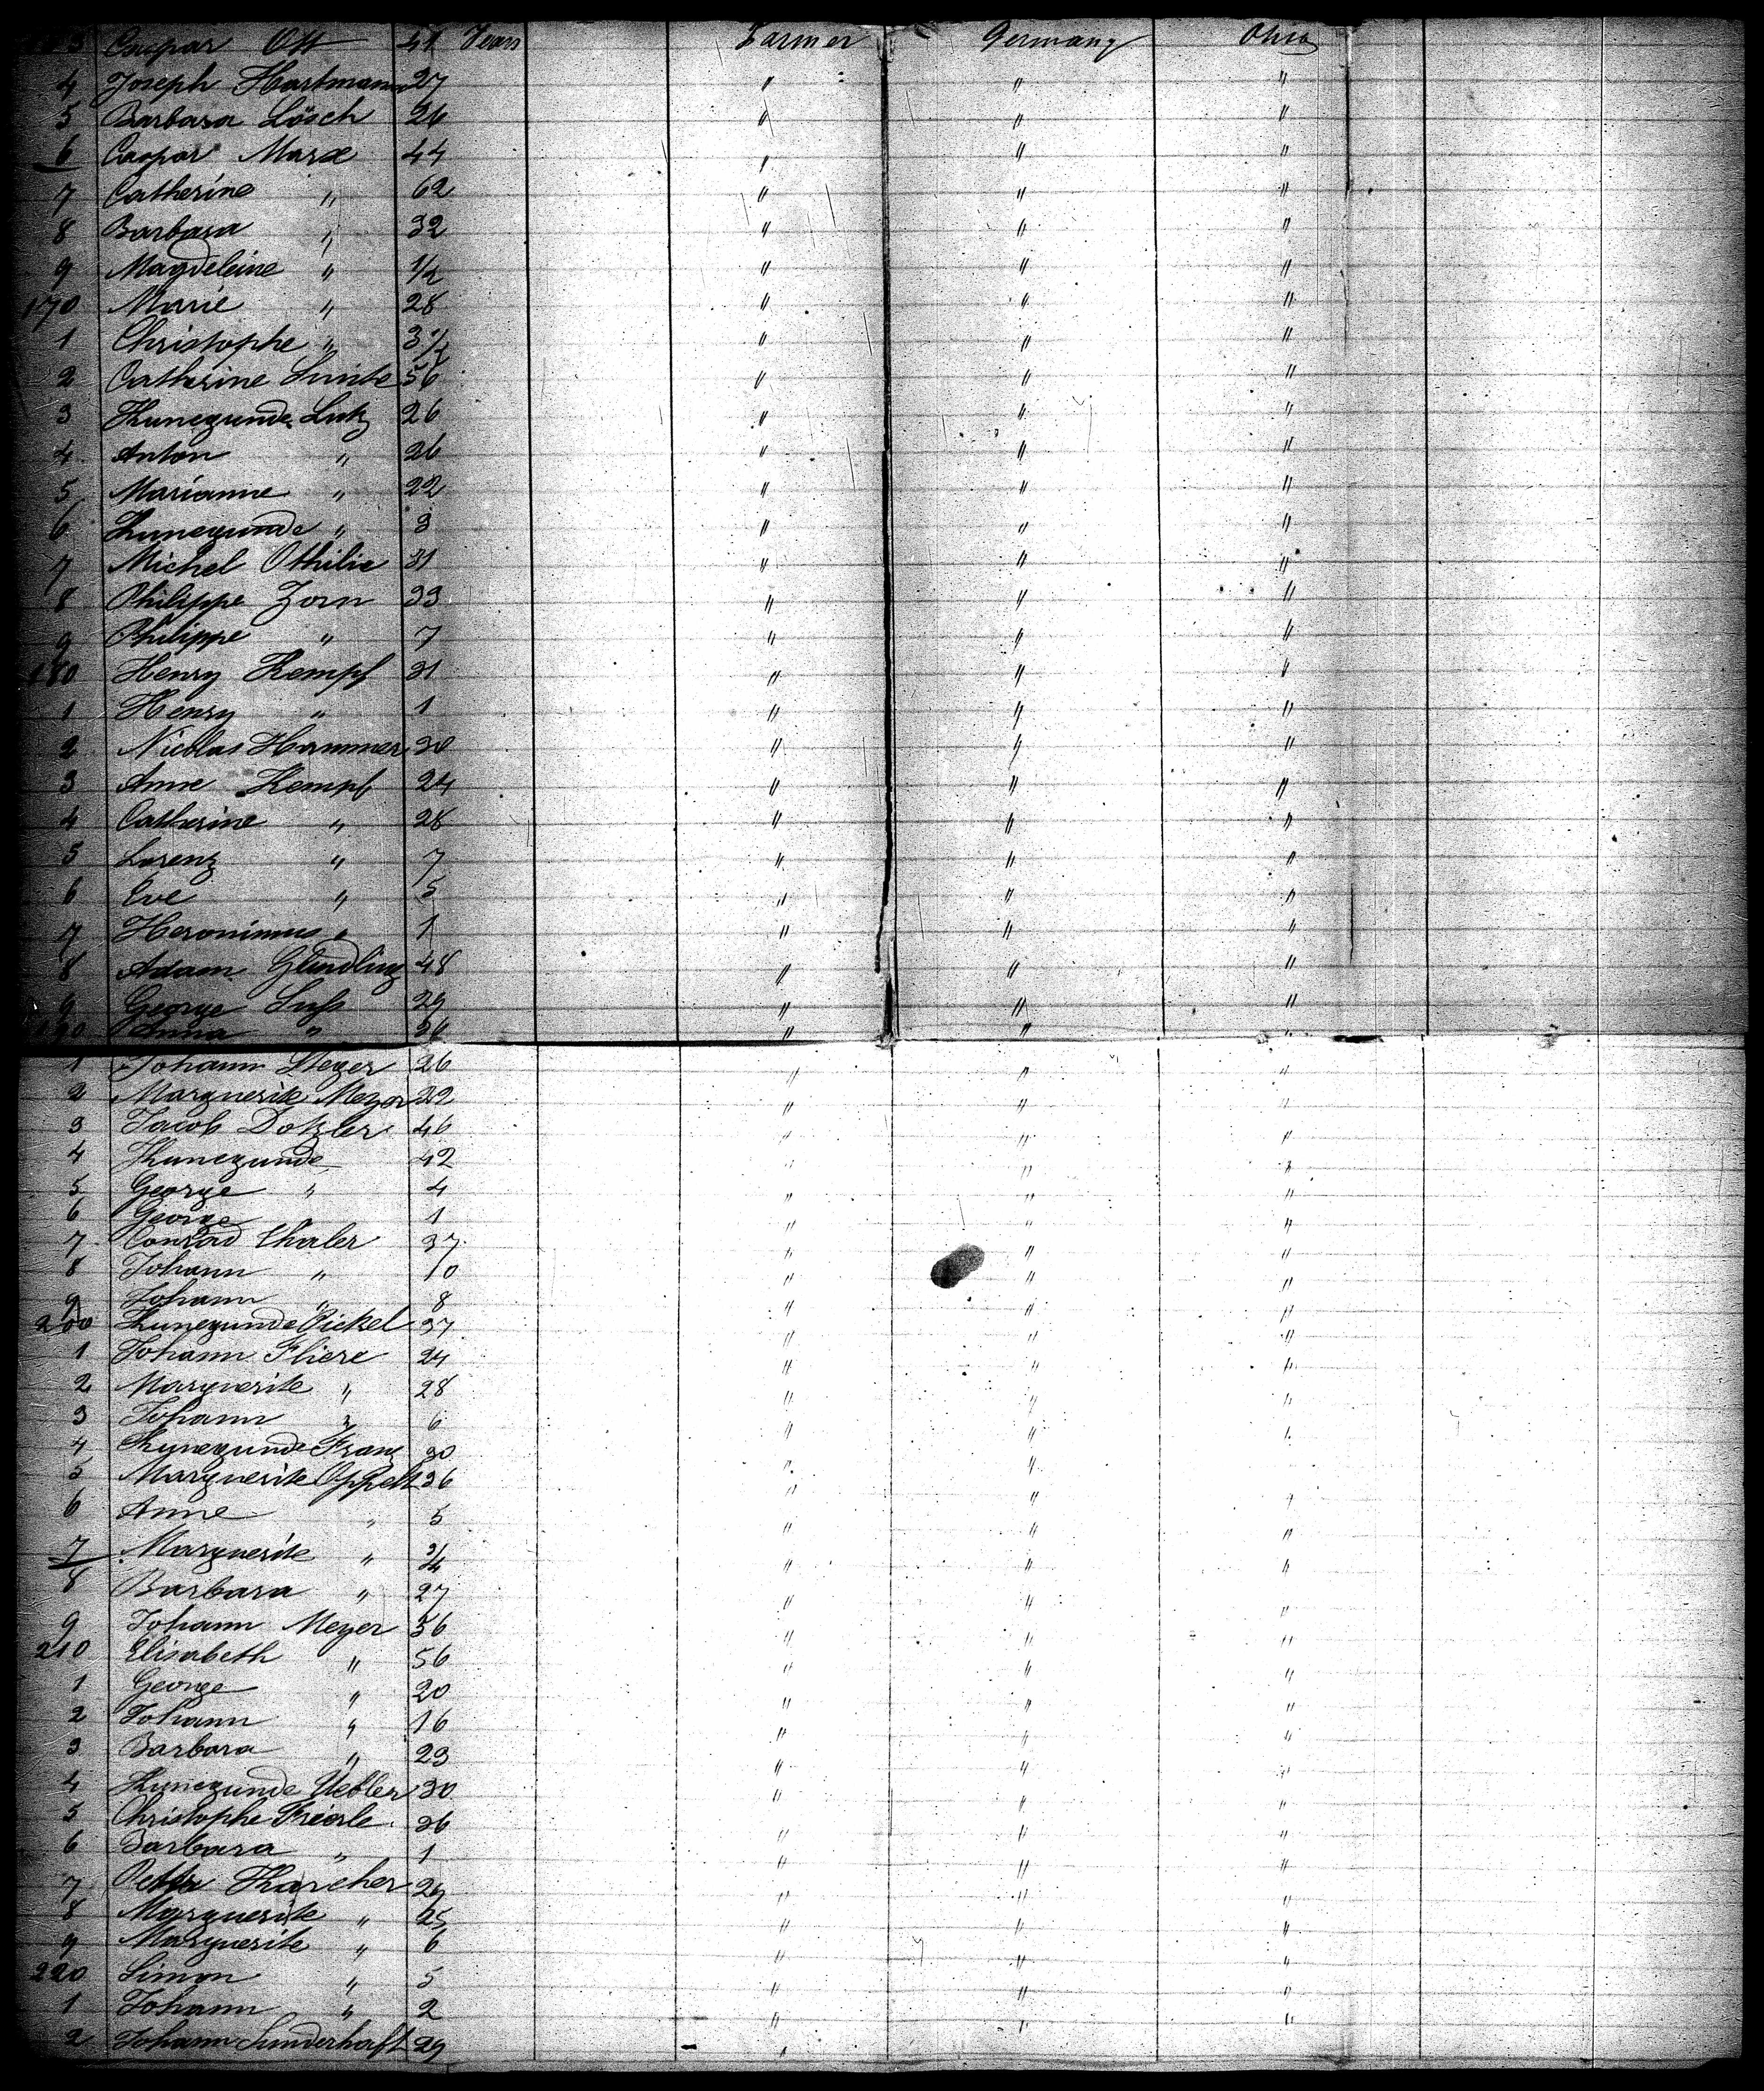 163 Caspar Ott 41 Years Farmer Germany Ohio
4 Joseph Hartmann 27 " " "
5 Barbara Lösch 26 " " "
6 Caspar Marx 44 " " "
7 Catherine " 62 " " "
8 Barbara " 32 " " "
9 Magdeleine " 1/2 " " "
170 Marie " 28 " " "
1 Christophe " 3 1/2 " " "
2 Catherine 56 " " "
3 Kunegunde Lutz 26 " " "
4 Anton " 26 " " "
5 Marianne " 22 " " "
6 Kunegunde " 3 " " "
7 Michel Othilie 31 " " "
8 Philippe Zorn 33 " " "
9 Philippe " 7 " " "
180 Henry Kempf 31 " " "
1 Henry " 1 " " "
2 Nicolas Hammer 30 " " "
3 Anne Kempf 24 " " "
4 Catherine " 28 " " "
5 Lorenz " 7 " " "
6 Eve " 5 " " "
7 Heronimus " 1 " " "
8 Adam Gündling 48 " " "
9 George 29 " " "
190 Anna " 26 " " "
1 Johann Steger 26 " " "
2 Marguerite Meyer 22 " " "
3 Jacob Dotzler 46 " " "
4 Kunegunde 42 " " "
5 George " 4 " " "
6 George " 1 " " "
7 Conrad Thaler 37 " " "
8 Johann " 10 " " "
9 Johann " 8 " " "
200 Kunegunde Pickel 37 " " "
1 Johann Fliere 24 " " "
2 Marguerite " 28 " " "
3 Johann " 6 " " "
4 Kunegunde Franz 30 " " "
5 Marguerite Oppelt 36 " " "
6 Anne " 5 " " "
7 Marguerite " 3/4 " " "
8 Barbara " 27 " " "
9 Johann Meyer 56 " " "
210 Elisabeth " 56 " " "
1 George " 20 " " "
2 Johann " 16 " " "
3 Barbara " 23 " " "
4 Kunegunde Uebler 30 " " "
5 Christophe 36 " " "
6 Barbara " 1 " " "
7 Peter Karcher 29 " " "
8 Marguerite " 25 " " "
9 Marguerite " 6 " " "
220 Simon " 5 " " "
1 Johann " 2 " " "
2 Johann Sunderhaft 29 " "